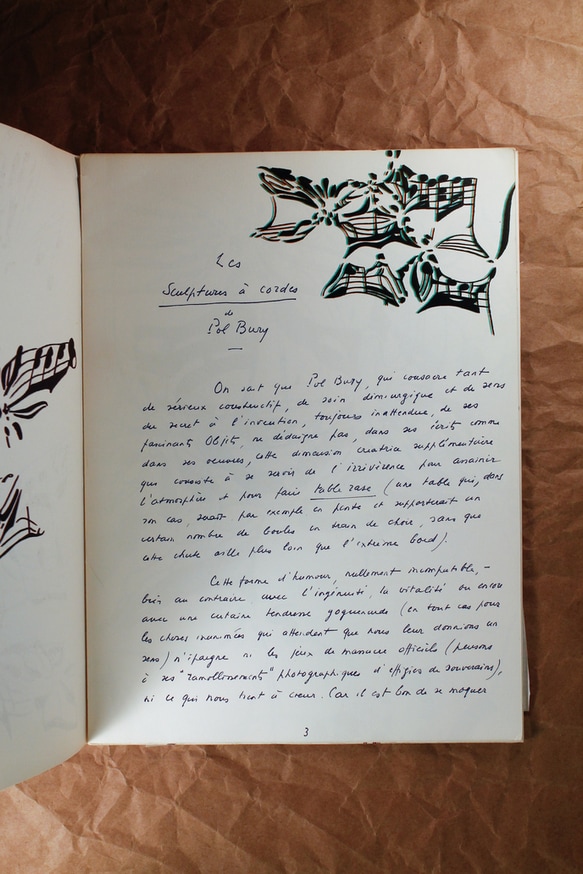 Les
Sculptures à cordes
de
Pol Bury
On sait que Pol Bury, qui consacre tant
de sérieux constructif, de soin démiurgique et de sens
du secret à l'invention, toujours inattendue, de ses
fascinants Objets, ne dédaigne pas, dans ses écrits comme
dans ses oeuvres, cette dimension créatrice supplémentaire
qui consiste à se servir de l'irrévérence pour assainir
l'atmosphère et pour faire table rase (une table qui, dans
son cas, serait par exemple en pente et supporterait un
certain nombre de boules en train de choir, sans que
cette chute aille plus loin que l'extrême bord).
Cette forme d'humour, nullement incompatible, -
bien au contraire, avec l'ingénuité, la vitalité ou encore
avec une certaine tendresse goguenarde (en tout cas pour
les choses inanimées qui attendent que nous leur donnions un
sens) n'épargne ni les jeux de massacre officiels (pensons
à ses "ramollissements" photographiques d'effigies de souverains),
ni ce qui nous tient à coeur. Car il est bon de se moquer
3